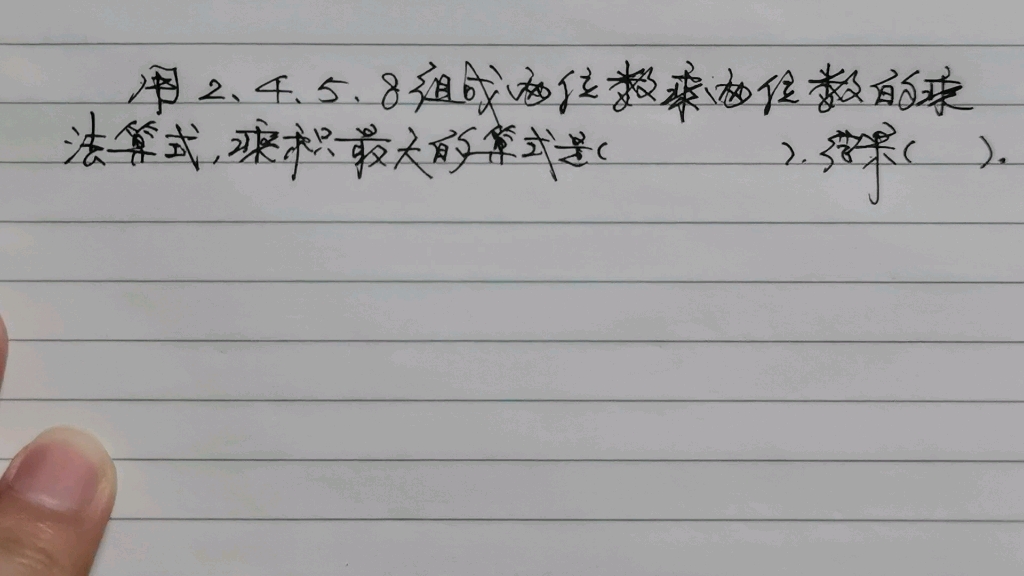 用2、4、5、8组成两位数乘两位数的乘
法算式,乘积最大的算式是( ).结果( ).